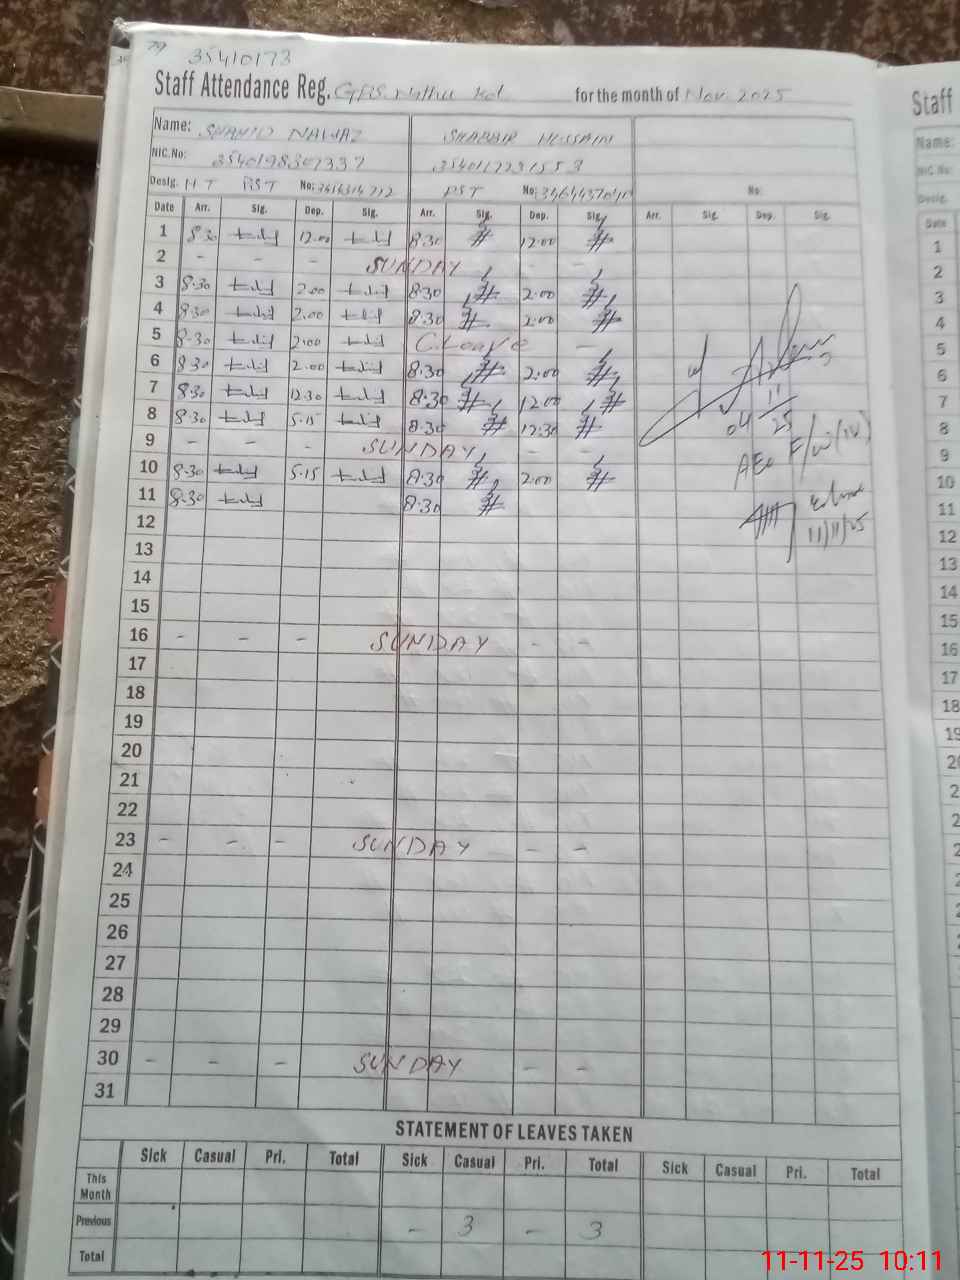 79 35410173
Staff Attendance Reg. GPS Nathu Kot for the month of Nov 2025
Name: SHAHID NAWAZ SHABBIR HUSSAIN
NIC.No: 3540198307337 3540117231553
Desig. HT PST No: PST No: No:
Date Arr. Sig. Dep. Sig. Arr. Sig. Dep. Sig. Arr. Sig. Dep. Sig.
1 8.30 12.00 8.30 12.00
2 - - - SUNDAY - -
3 8.30 2.00 8.30 2.00
4 8.30 2.00 8.30 2.00
5 8.30 2.00 C.Leave -
6 8.30 2.00 8.30 2.00
7 8.30 12.30 8.30 12.00
8 8.30 5.15 8.30 12.30
9 - - - SUNDAY - -
10 8.30 5.15 8.30 2.00
11 8.30 8.30
04/11/25
AEO
11/11/25
12
13
14
15
16 - - - SUNDAY - -
17
18
19
20
21
22
23 - - - SUNDAY - -
24
25
26
27
28
29
30 - - - SUNDAY - -
31
STATEMENT OF LEAVES TAKEN
Sick Casual Pri. Total Sick Casual Pri. Total Sick Casual Pri. Total
This Month
Previous - 3 - 3
Total
Staff
Name:
NIC.No:
Desig.
Date
1
2
3
4
5
6
7
8
9
10
11
12
13
14
15
16
17
18
11-11-25 10:11